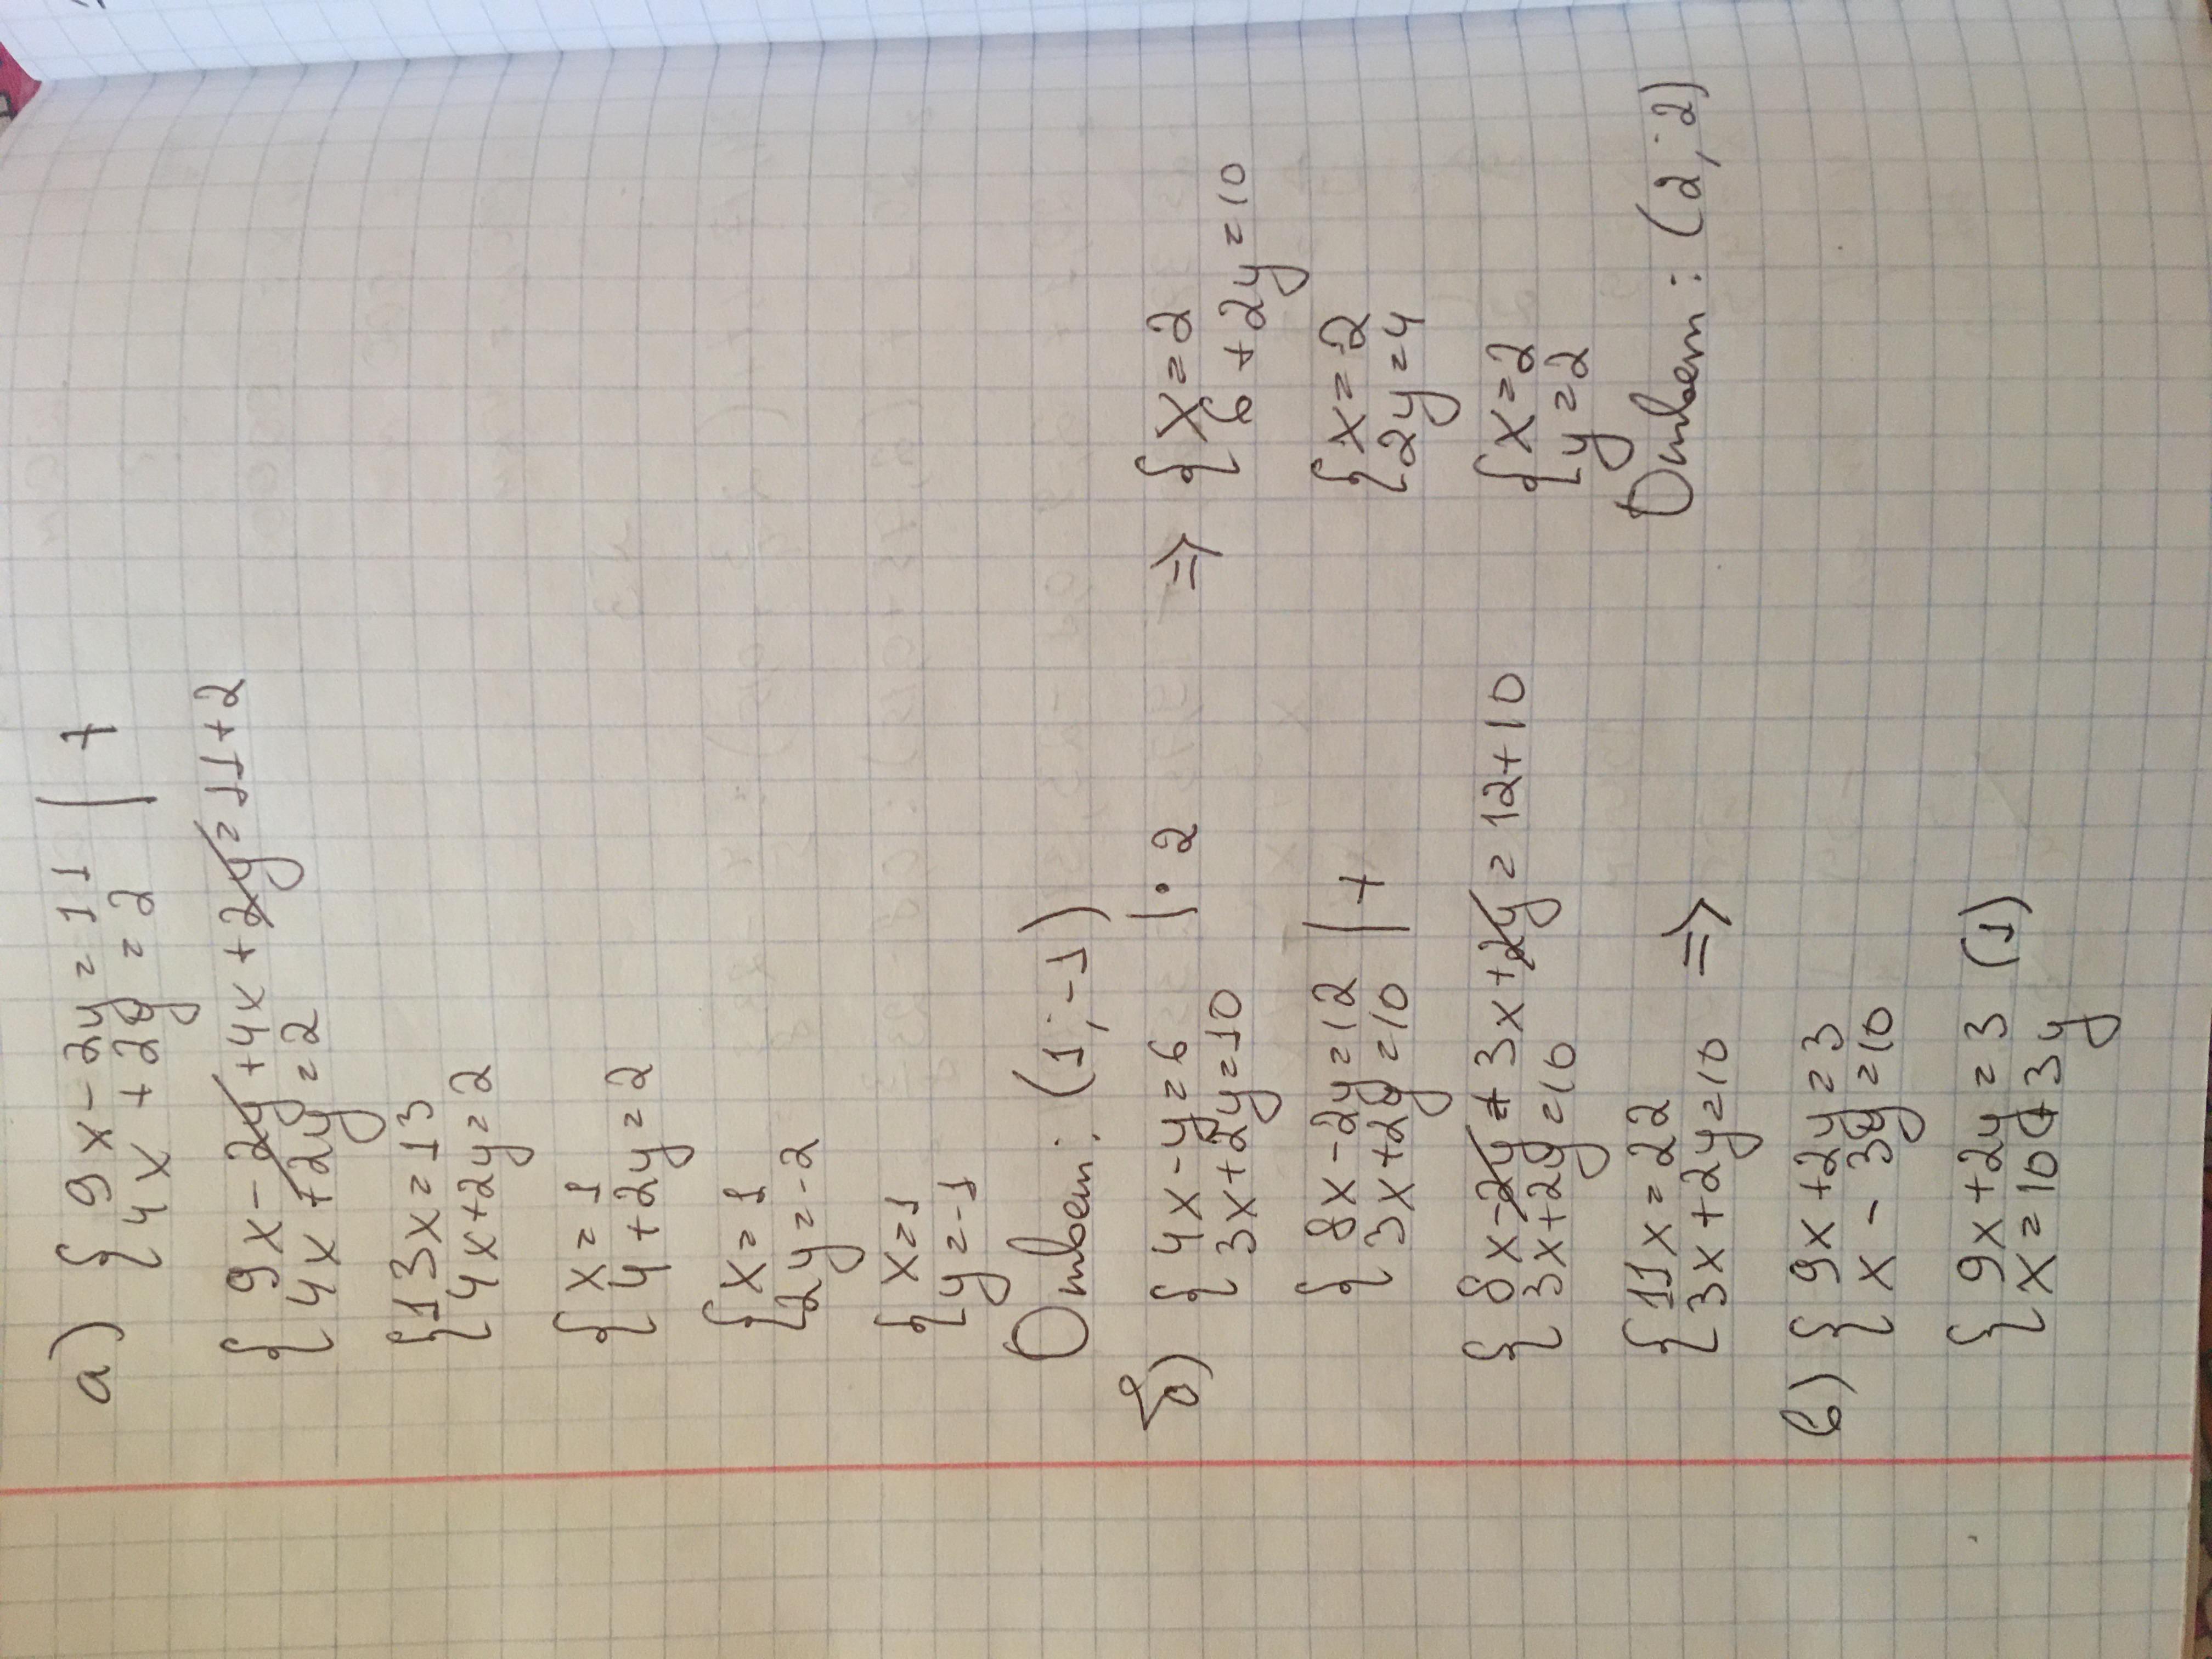 а) { 9x - 2y = 11 | +
4x + 2y = 2
{ 9x - 2y + 4x + 2y = 11 + 2
4x + 2y = 2
{ 13x = 13
4x + 2y = 2
{ x = 1
4 + 2y = 2
{ x = 1
2y = -2
{ x = 1
y = -1
Ответ: (1; -1)
б) { 4x - y = 6 | · 2
3x + 2y = 10
{ 8x - 2y = 12 | +
3x + 2y = 10
{ 8x - 2y + 3x + 2y = 12 + 10
3x + 2y = 10
{ 11x = 22
3x + 2y = 10 ⇒
⇒ { x = 2
6 + 2y = 10
{ x = 2
2y = 4
{ x = 2
y = 2
Ответ: (2; 2)
в) { 9x + 2y = 3
x - 3y = 10
{ 9x + 2y = 3 (1)
x = 10 + 3y